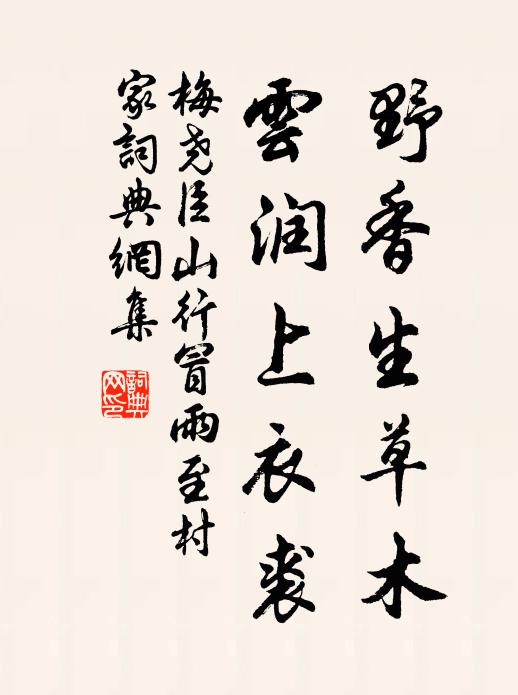 野香生草木
雲润上衣裘
梅尧臣山行冒雨至村
家詞典網集
詞典
网印